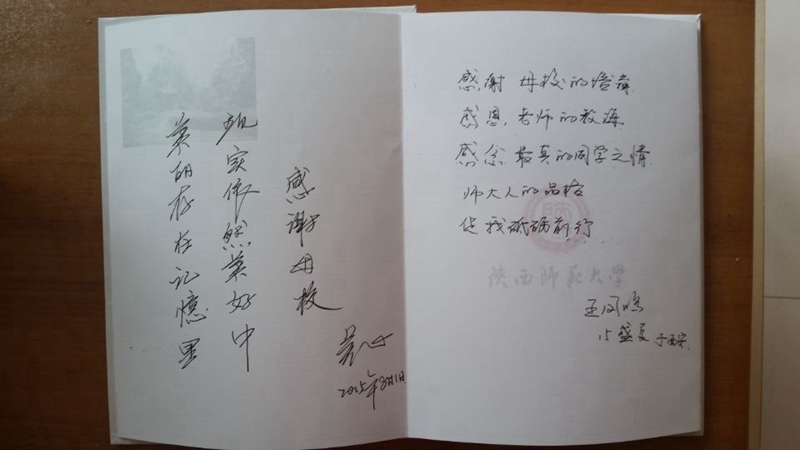 美的存在记憶里
现实依然美好中
感谢母校
2015年8月1日
感谢 母校的培养
感恩 老师的教诲
感念 最真的同学之情
师大人的品格
促我砥砺前行
陕西师范大学
王凤鸣
15盛夏 于西安